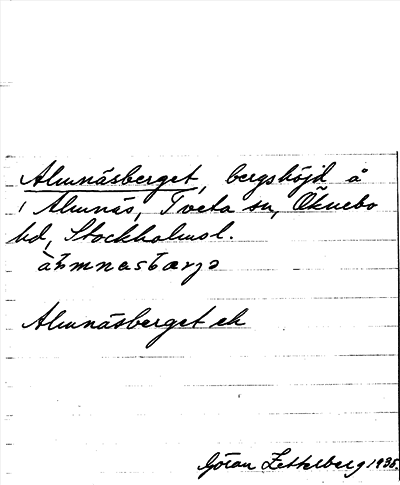 Almnäsberget, bergshöjd å
1 Almnäs, Tveta sn, Öknebo
hd, Stockholmsl.
Almnäsberget ek
Göran Zetterberg 1935.